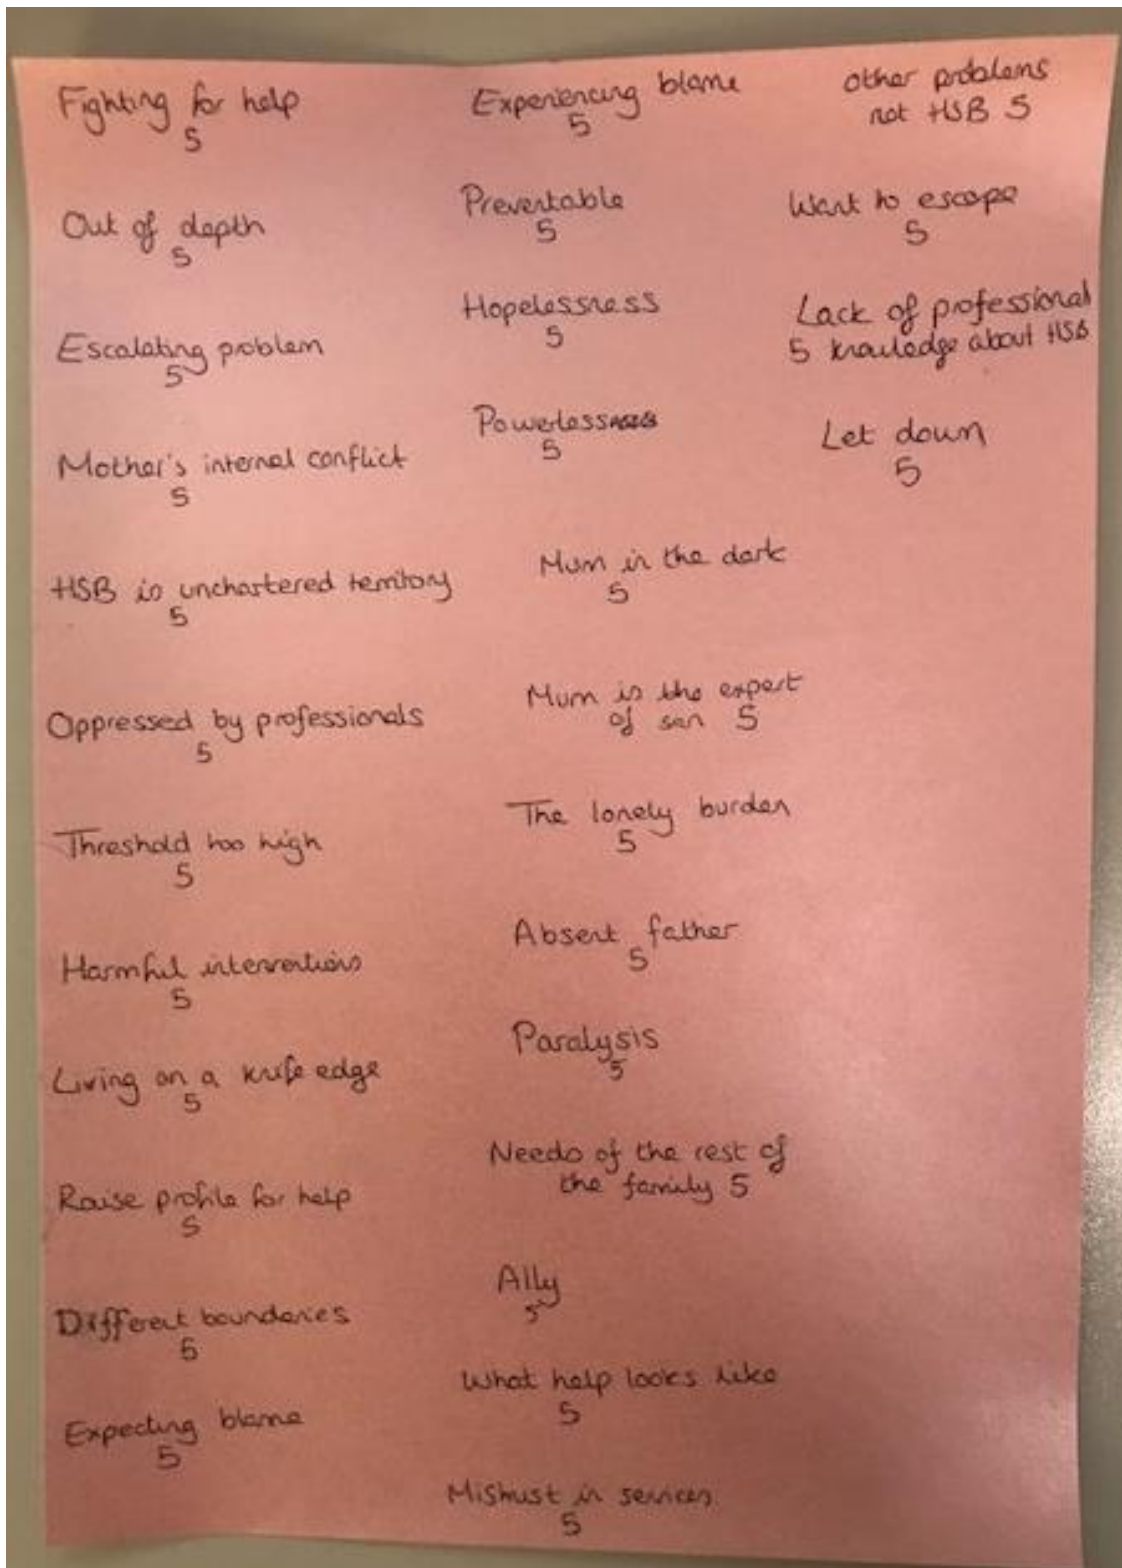 Fighting for help
5
Out of depth
5
Escalating problem
5
Mother's internal conflict
5
HSB is unchartered territory
5
Oppressed by professionals
5
Threshold too high
5
Harmful interventions
5
Living on a knife edge
5
Raise profile for help
5
Different boundaries
5
Expecting blame
5
Experiencing blame
5
Preventable
5
Hopelessness
5
Powerlessness
5
Mum in the dark
5
Mum is the expert
of son 5
The lonely burden
5
Absent father
5
Paralysis
5
Needs of the rest of
the family 5
Ally
5
What help looks like
5
Mistrust in services
5
other problems
not HSB 5
Want to escape
5
Lack of professional
5 knowledge about HSB
Let down
5